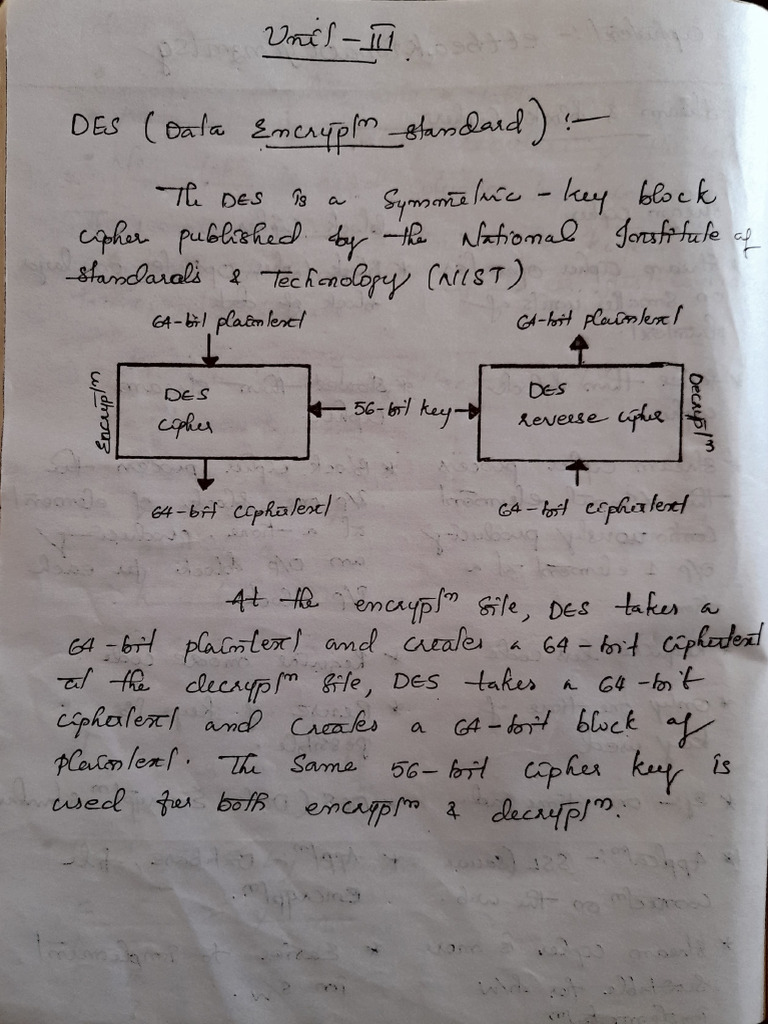 Unit - III
DES (Data Encryptⁿ standard) :-
The DES is a Symmetric - key block
cipher published by the National Institute of
standards & Technology (NIST)
64-bit plaintext
64-bit plaintext
Encryptⁿ
DES
cipher
56-bit key
DES
reverse cipher
Decryptⁿ
64-bit ciphertext
64-bit ciphertext
At the encryptⁿ site, DES takes a
64-bit plaintext and creates a 64-bit ciphertext
at the decryptⁿ site, DES takes a 64-bit
ciphertext and creates a 64-bit block of
plaintext. The Same 56-bit cipher key is
used for both encryptⁿ & decryptⁿ.